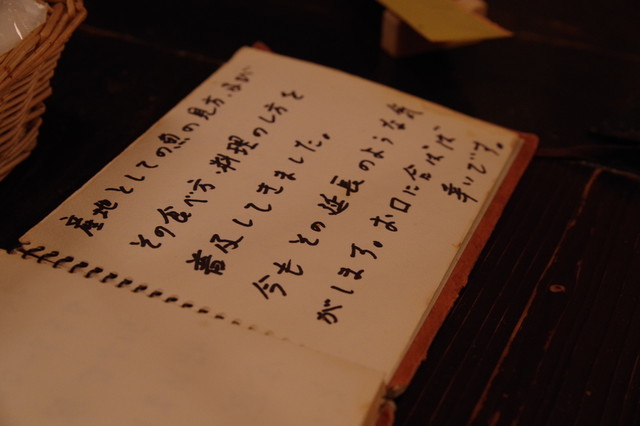 産地としての魚の見方、及び
その食べ方・料理のし方を
普及してきました。
今もその延長のような気
がします。お口に合はば
幸いです。